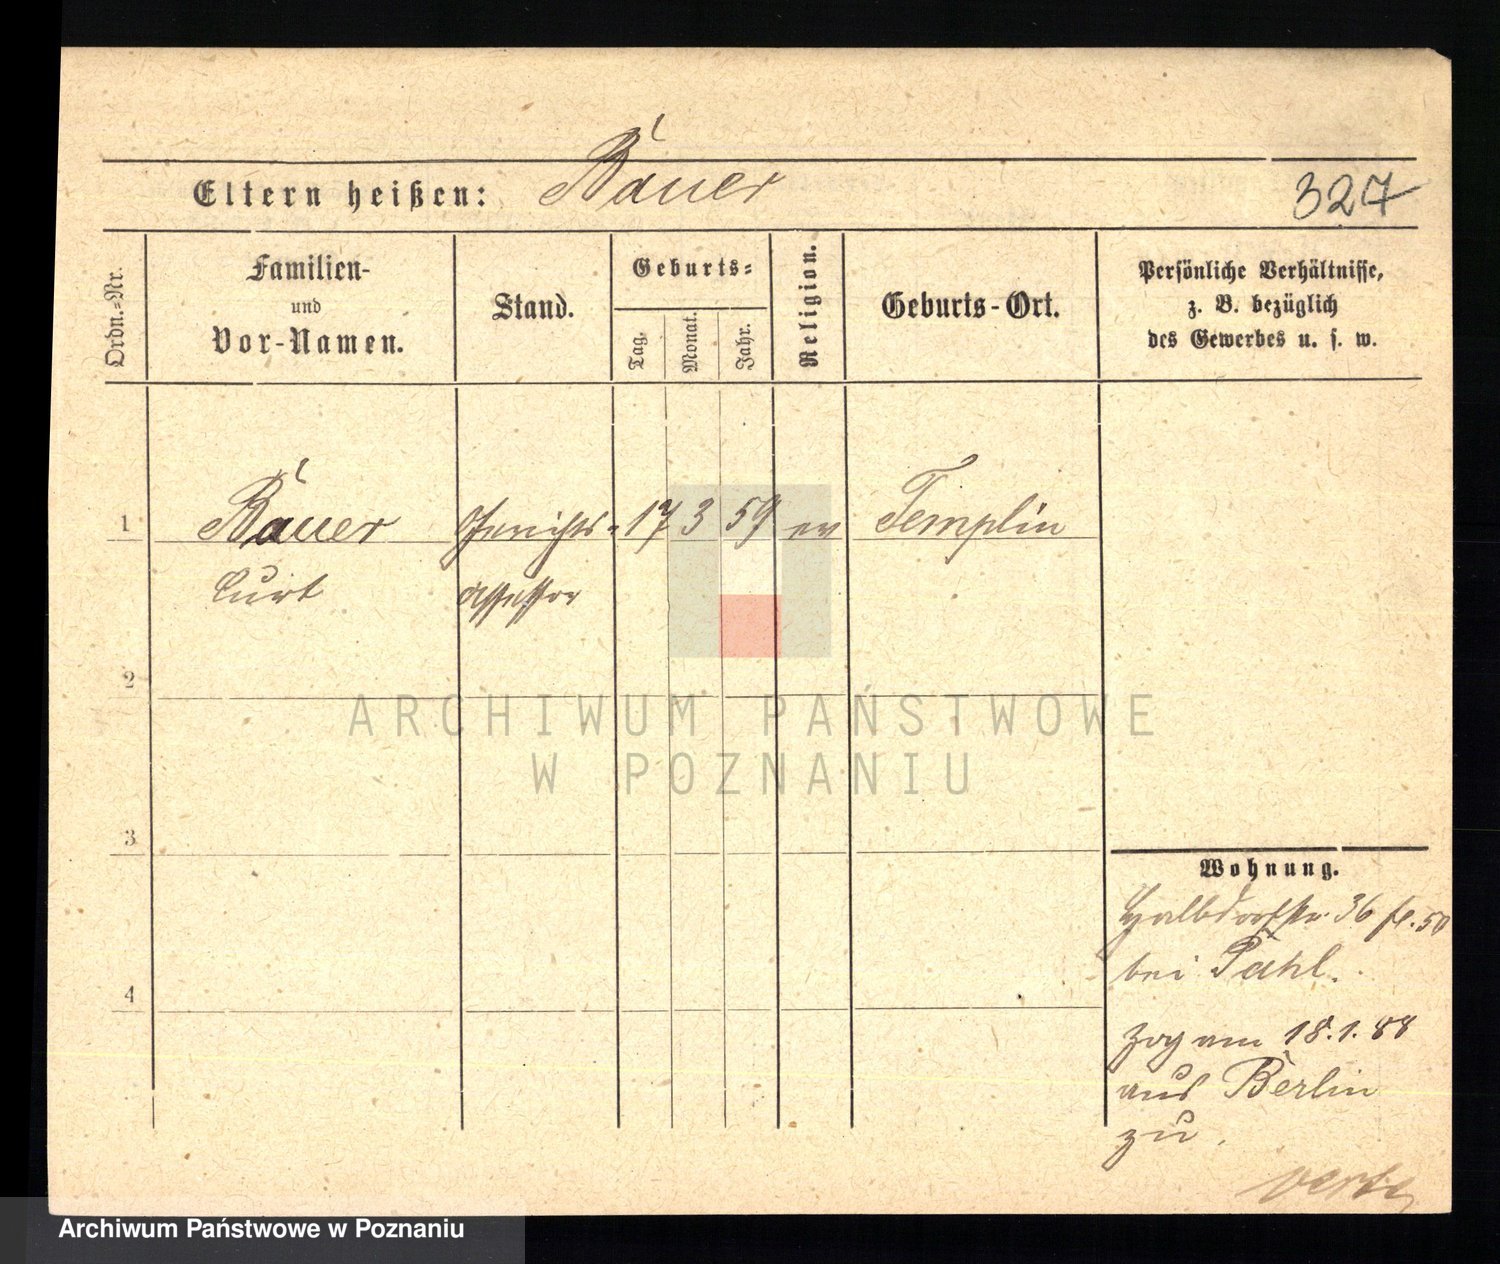 Eltern heißen: Bauer
327
Ordn.-Nr.
Familien-
und
Vor-Namen.
Stand.
Geburts-
Tag.
Monat.
Jahr.
Religion.
Geburts-Ort.
Persönliche Verhältnisse,
z. B. bezüglich
des Gewerbes u. s. w.
1 Bauer Gerichts- 17 3 59 ev Templin
Curt assessor
2
3
4
Wohnung.
Halbdorfstr. 36 fl. 50
bei Pahl.
zog am 18.1.88
aus Berlin
zu.
verte
ARCHIWUM PAŃSTWOWE
W POZNANIU
Archiwum Państwowe w Poznaniu